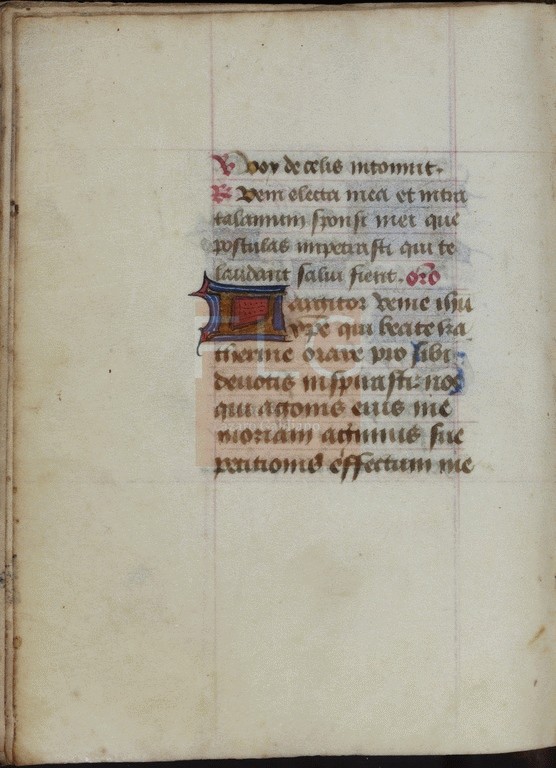 V Vox de celis intonuit.
R Veni electa mea et intra
talamum sponsi mei que
postulas impetrasti qui te
laudant salvi fient. oro
Largitor venie ihu
xpe qui beate ka
therine orare pro sibi
devotis inspirasti: nos
qui agonis eius me
moriam agimus sue
petitionis effectum me